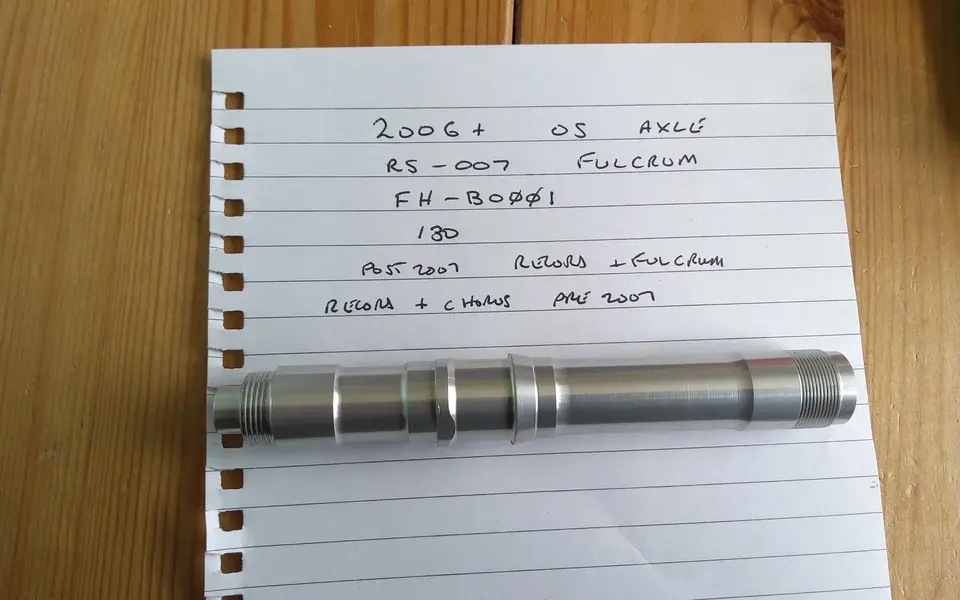 2006+ OS AXLE
RS-007 FULCRUM
FH-B0001
130
POST 2007 RECORD + FULCRUM
RECORD + CHORUS PRE 2007